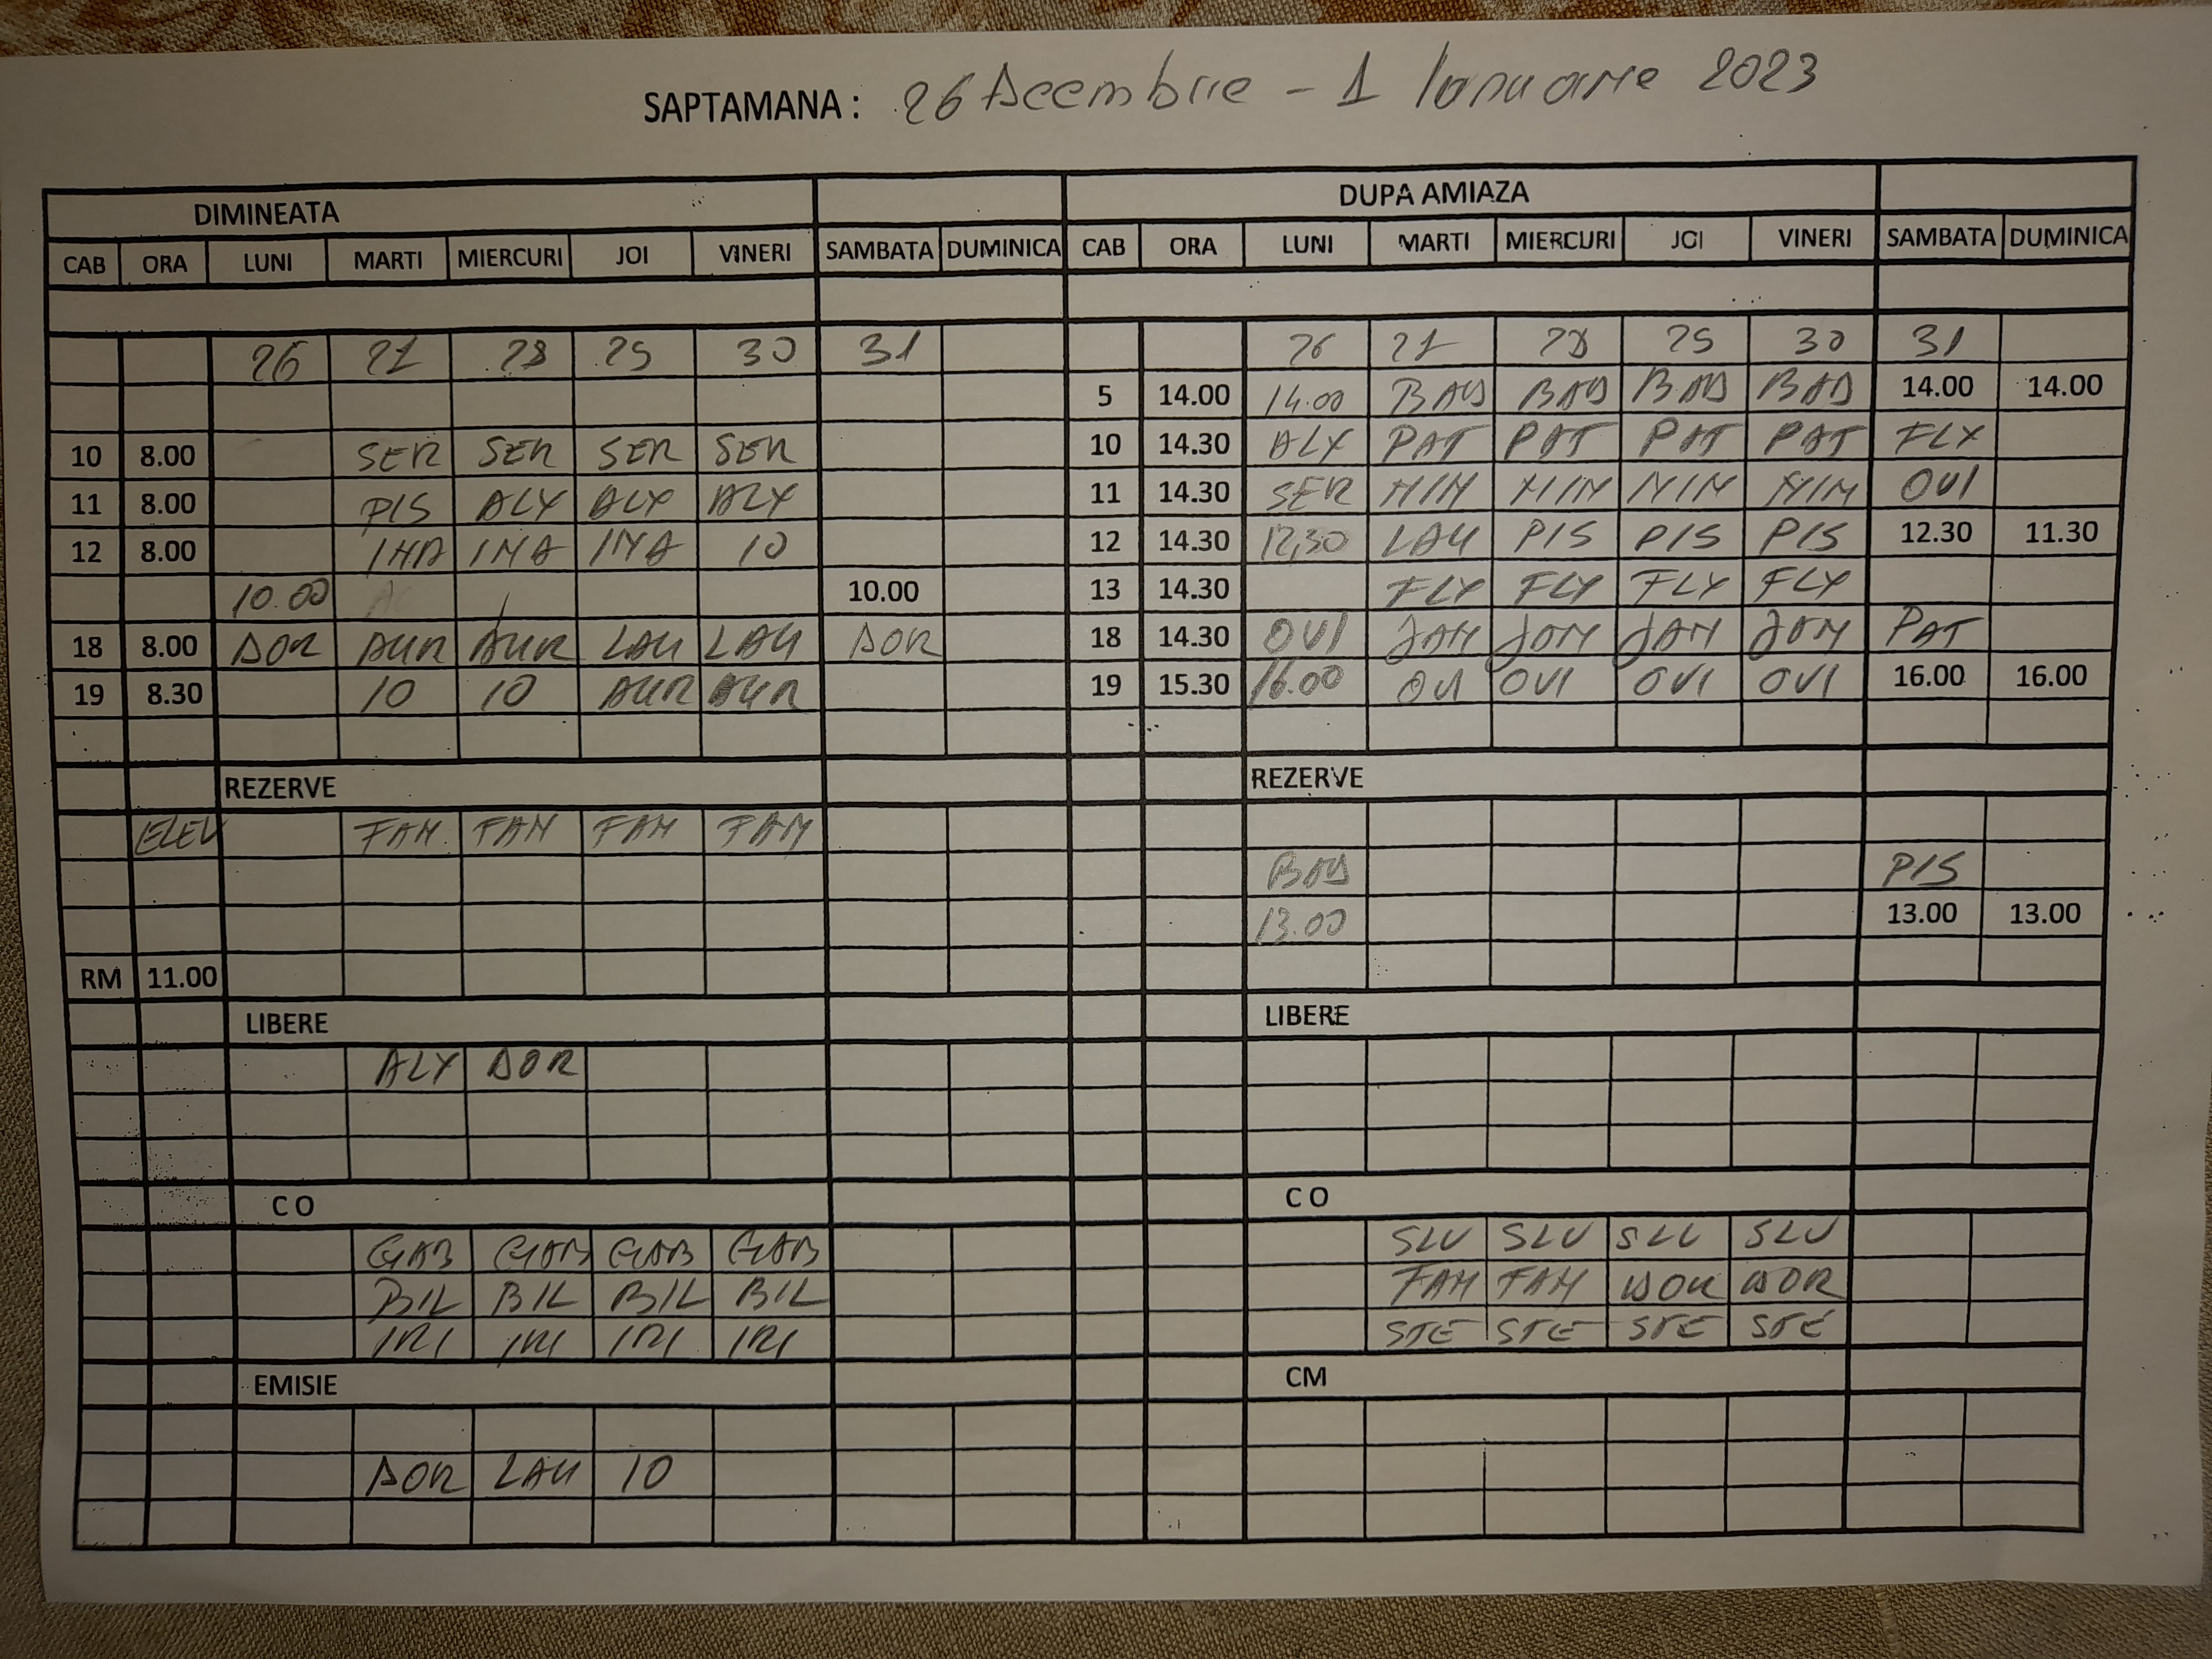 SAPTAMANA : 26 Decembrie - 1 Ianuarie 2023
DIMINEATA DUPA AMIAZA
CAB ORA LUNI MARTI MIERCURI JOI VINERI SAMBATA DUMINICA CAB ORA LUNI MARTI MIERCURI JOI VINERI SAMBATA DUMINICA
26 27 28 29 30 31 26 27 28 29 30 31
5 14.00 14.00 BAD BAD BAD BAD 14.00 14.00
10 8.00 SER SER SER SER 10 14.30 ALX PAT PAT PAT PAT FLX
11 8.00 PIS ALX ALX ALX 11 14.30 SER MIM MIM MIM MIM OVI
12 8.00 IMA IMA IMA IO 12 14.30 12,30 LAU PIS PIS PIS 12.30 11.30
10.00 10.00 13 14.30 FLX FLX FLX FLX
18 8.00 DOR AUR AUR LAU LAU DOR 18 14.30 OVI JAM JAM JAM JAM PAT
19 8.30 IO IO AUR AUR 19 15.30 16.00 OVI OVI OVI OVI 16.00 16.00
REZERVE REZERVE
ELEV FAM FAM FAM FAM
BAD PIS
13.00 13.00 13.00
RM 11.00
LIBERE LIBERE
ALX DOR
C O C O
GAB GAB GAB GAB SLV SLV SLV SLV
BIL BIL BIL BIL FAM FAM DOR DOR
IRI IRI IRI IRI STE STE STE STE
EMISIE CM
DOR LAU IO